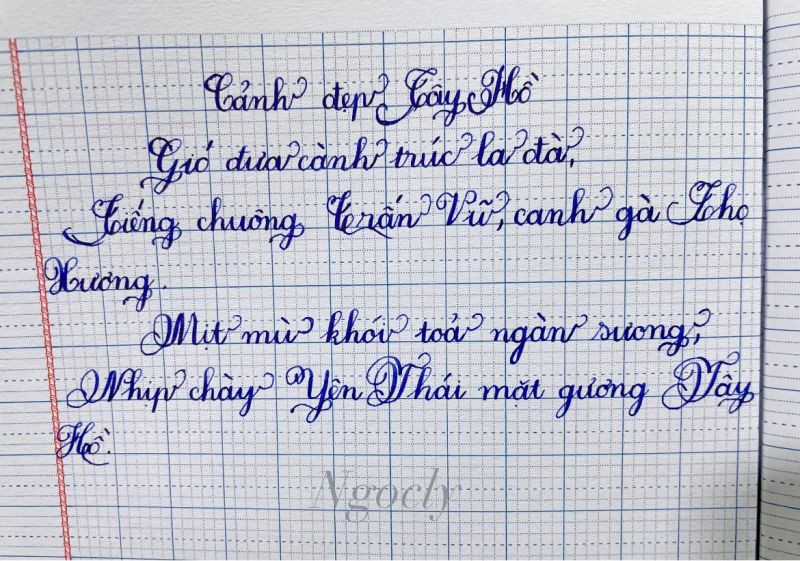 Cảnh đẹp Tây Hồ
Gió đưa cành trúc la đà,
Tiếng chuông Trấn Vũ, canh gà Thọ
Xương.
Mịt mù khói toả ngàn sương,
Nhịp chày Yên Thái mặt gương Tây
Hồ.
Ngocly